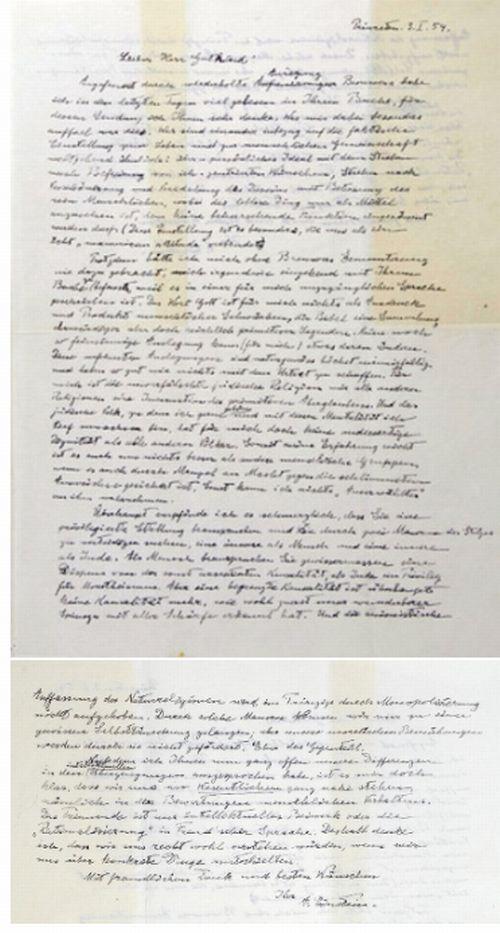 Princeton. 3. I. 54.
Lieber Herr Gutkind!
Anregung
Angefeuert durch wiederholte Brouwers habe
ich in den letzten Tagen viel gelesen in Ihrem Buche, für
dessen Sendung ich Ihnen sehr danke. Was mir dabei besonders
auffiel war dies. Wir sind einander inbezug auf die faktische
Einstellung zum Leben und zur menschlichen Gemeinschaft
weitgehend ähnlich: über-persönliches Ideal mit dem Streben
nach Befreiung von ich-zentrierten Wünschen, Streben nach
Verschönerung und Veredelung des Daseins mit Betonung des
rein Menschlichen, wobei das leblose Ding nur als Mittel
anzusehen ist, dem keine beherrschende Funktion eingeräumt
werden darf. (Diese Einstellung ist es besonders, die uns als ein
echt "unamerican attitude" verbindet)
Trotzdem hätte ich mich ohne Brouwers Ermunterung
nie dazu gebracht, mich irgendwie eingehend mit Ihrem
Buche zu befassen, weil es in einer für mich unzugänglichen Sprache
geschrieben ist. Das Wort Gott ist für mich nichts als Ausdruck
und Produkt menschlicher Schwächen, die Bibel eine Sammlung
ehrwürdiger aber doch reichlich primitiver Legenden. Keine noch
so feinsinnige Auslegung kann (für mich) etwas daran ändern.
Diese verfeinerten Auslegungen sind naturgemäss höchst mannigfaltig
und haben so gut wie nichts mit dem Urtext zu schaffen. Für
mich ist die unverfälschte jüdische Religion wie alle anderen
Religionen eine Incarnation des primitiven Aberglaubens. Und das
jüdische Volk, zu dem ich gerne gehöre und mit dessen Mentalität ich
tief verwachsen bin, hat für mich doch keine andersartige
Dignität als alle anderen Völker. Soweit meine Erfahrung reicht
ist es auch um nichts besser als andere menschliche Gruppen,
wenn es auch durch Mangel an Macht gegen die schlimmsten
Auswüchse gesichert ist. Sonst kann ich nichts „Auserwähltes“
an ihm wahrnehmen.
Überhaupt empfinde ich es schmerzlich, dass Sie eine
privilegierte Stellung beanspruchen und sie durch zwei Mauern des Stolzes
zu verteidigen suchen, eine äussere als Mensch und eine innere
als Jude. Als Mensch beanspruchen Sie gewissermassen einen
Dispens von der sonst acceptierten Kausalität, als Jude ein Privileg
für Monotheismus. Aber eine begrenzte Kausalität ist überhaupt
keine Kausalität mehr, wie wohl zuerst unser wunderbarer
Spinoza mit aller Schärfe erkannt hat. Und die animistische
Auffassung der Naturreligionen wird im Prinzip durch Monopolisierung
nicht aufgehoben. Durch solche Mauern können wir nur zu einer
gewissen Selbsttäuschung gelangen, aber unsere moralischen Bemühungen
werden durch sie nicht gefördert. Eher das Gegenteil.
Nachdem ich Ihnen nun ganz offen unsere Differenzen
intellektuellen
in den Überzeugungen ausgesprochen habe, ist es mir doch
klar, dass wir uns im Wesentlichen ganz nahe stehen,
nämlich in den Bewertungen menschlichen Verhaltens.
Das Trennende ist nur intellektuelles Beiwerk oder die
„Rationalisierung“ in Freud'scher Sprache. Deshalb denke
ich, dass wir uns recht wohl verstehen würden, wenn wir
uns über konkrete Dinge unterhielten.
Mit freundlichem Dank und besten Wünschen
Ihr
A. Einstein.